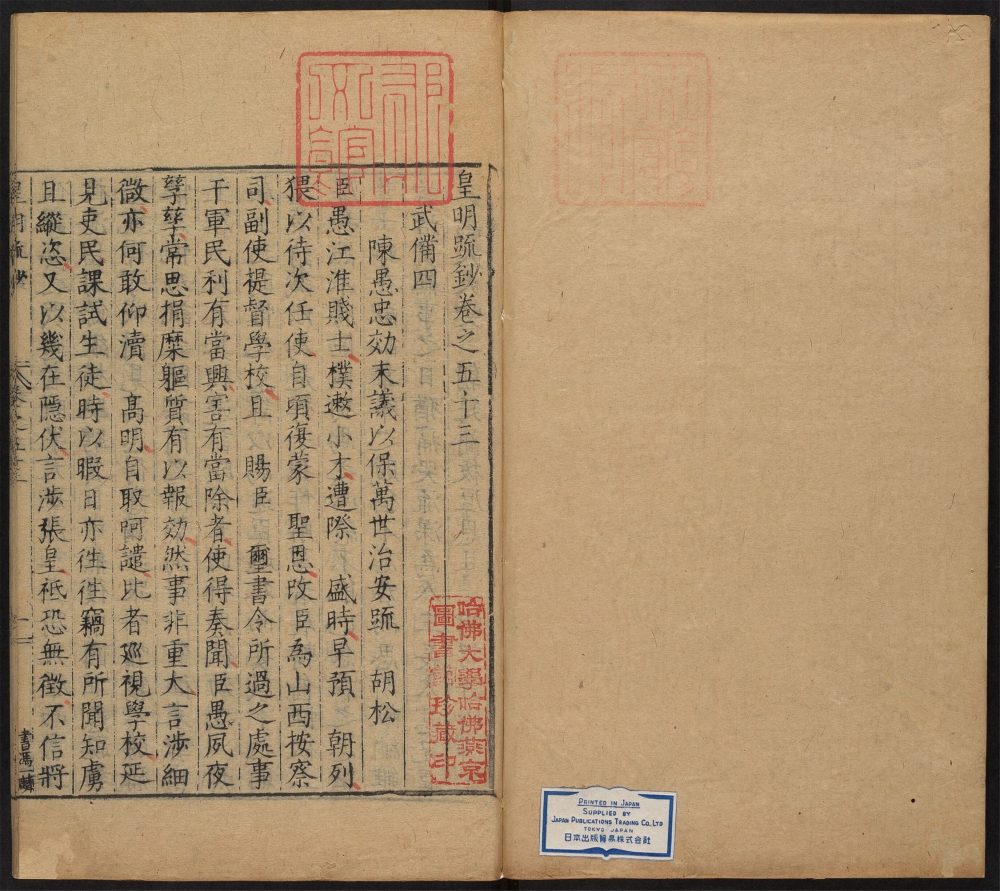 皇明疏鈔卷之五十三
武備四
陳愚忠効末議以保萬世治安疏 胡松
臣愚江淮賤士樸遬小才遭際 盛時早預 朝列
猥以待次任使自頃復蒙 聖恩改臣爲山西按察
司副使提督學校且 賜臣 璽書令所過之處事
干軍民利有當興害有當除者使得奏聞臣愚夙夜
孳孳常思捐糜軀質有以報効然事非重大言涉細
微亦何敢仰瀆 高明自取呵譴比者廵視學校延
見吏民課試生徒時以暇日亦徃徃竊有所聞知虜
且縱恣又以幾在隱伏言涉張皇祗恐無徵不信將
皇明疏鈔
書馮一麟
哈佛大學哈佛燕京
圖書舘珍藏印
PRINTED IN JAPAN
SUPPLIED BY
JAPAN PUBLICATIONS TRADING CO., LTD
TOKYO JAPAN
日本出版貿易株式会社